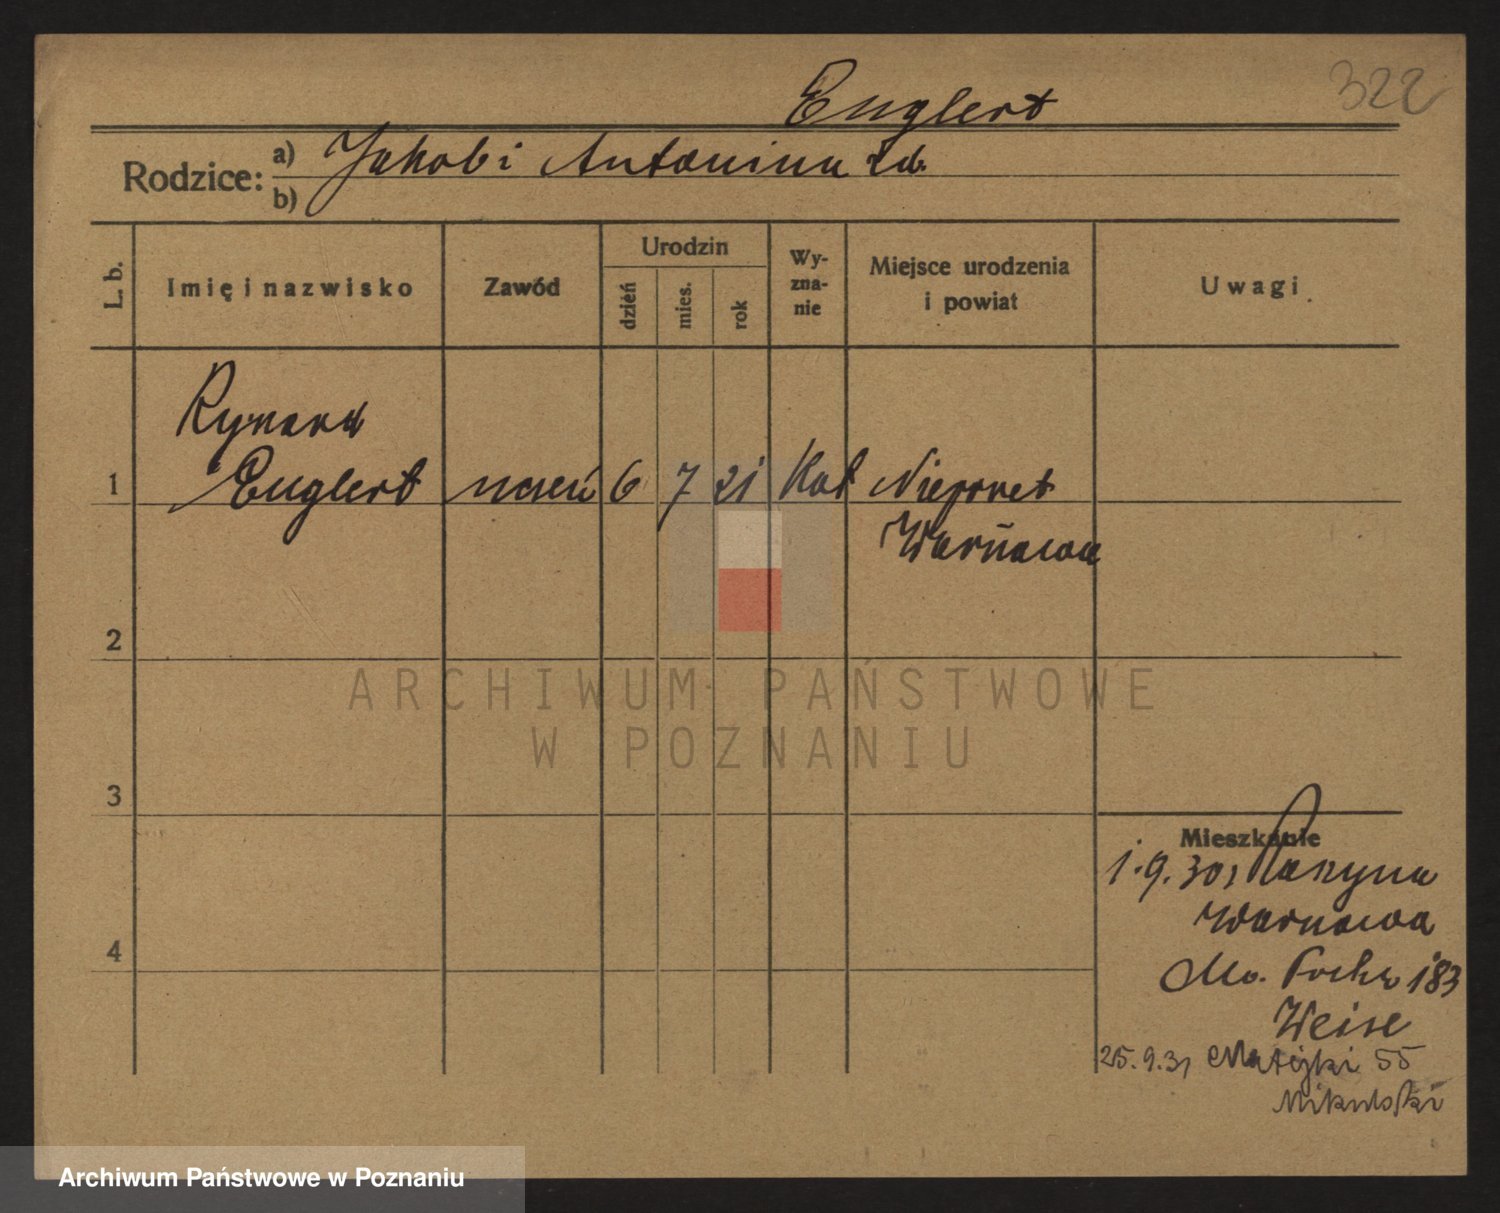 322
Englert
Rodzice: a) Jakob i Antonina
b)
L. b.
Imię i nazwisko
Zawód
Urodzin
dzień
mies.
rok
Wy-
zna-
nie
Miejsce urodzenia
i powiat
Uwagi
Ryszard
1 Englert uczeń 6 7 21 Kat Nieporęt
Warszawa
2
3
4
Mieszkanie
1.9.30
Warszawa
183
Weise
25.9.31 Matejki 55
ARCHIWUM PAŃSTWOWE
W POZNANIU
Archiwum Państwowe w Poznaniu